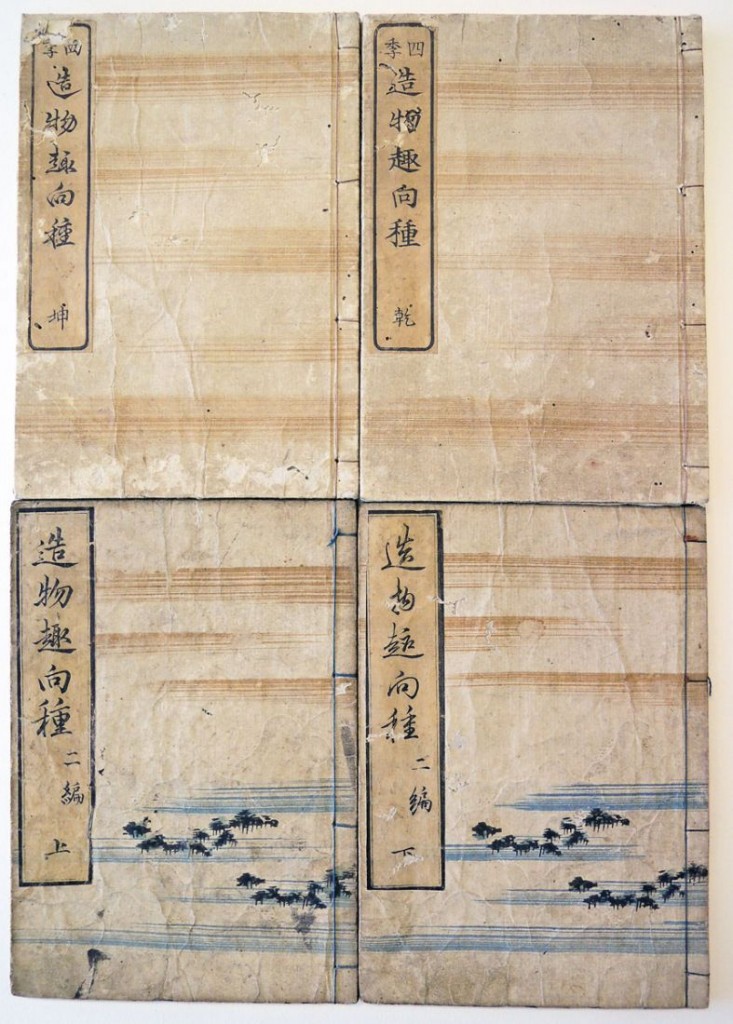 四季
造物趣向種
乾
四季
造物趣向種
坤
造物趣向種
二編
上
造物趣向種
二編
下